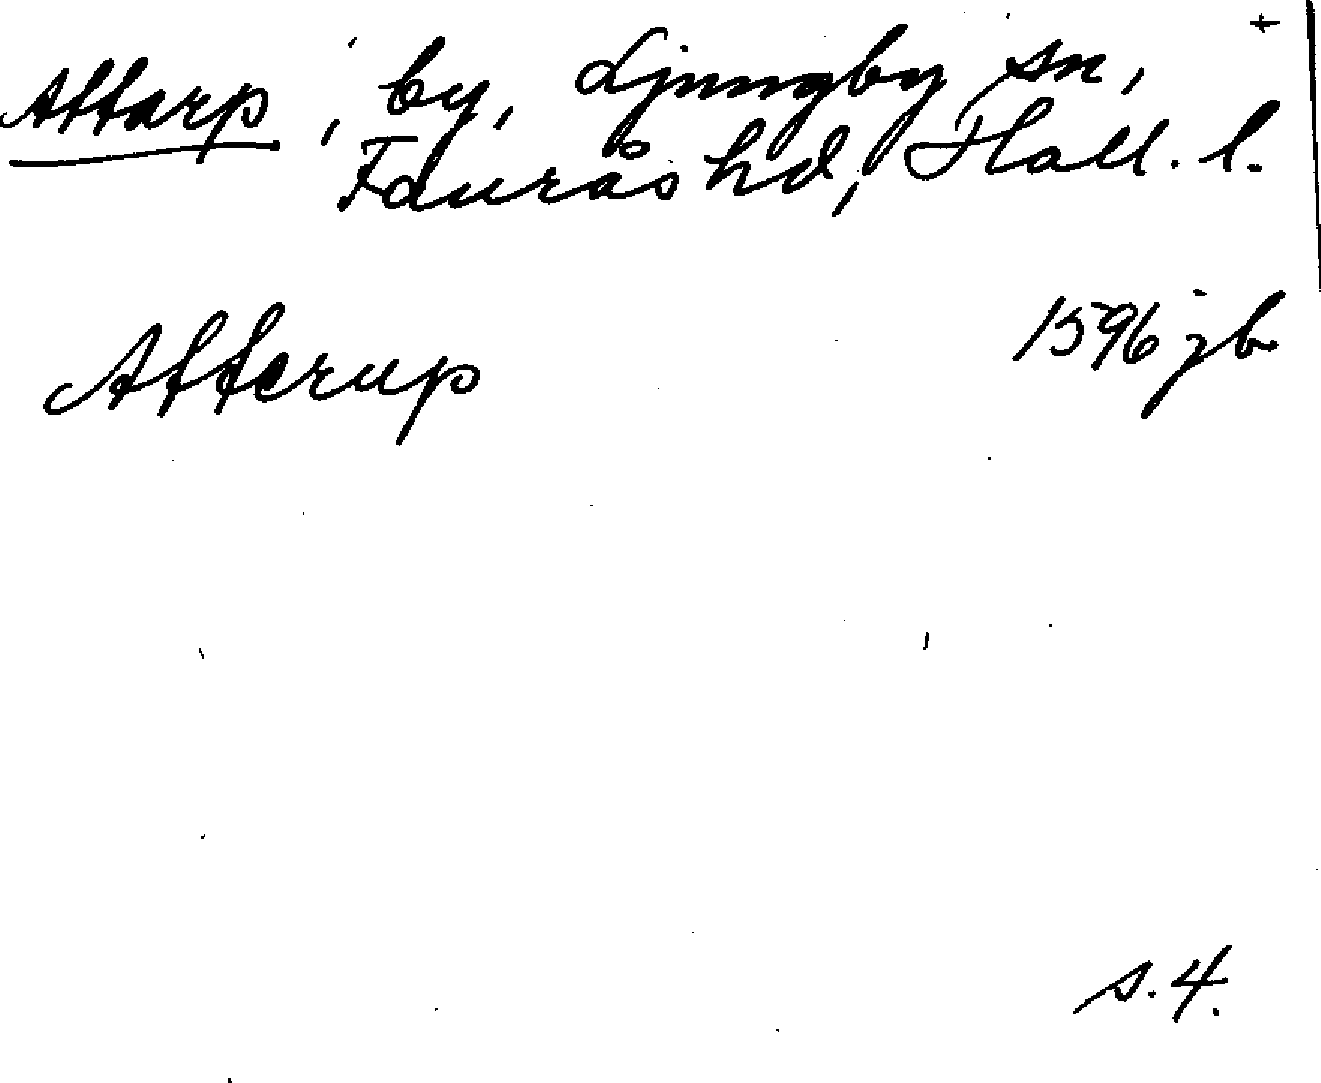 +
Attarp, by, Ljungby sn,
Faurås hd, Hall. l.
Atterup 1596 jb
s. 4.